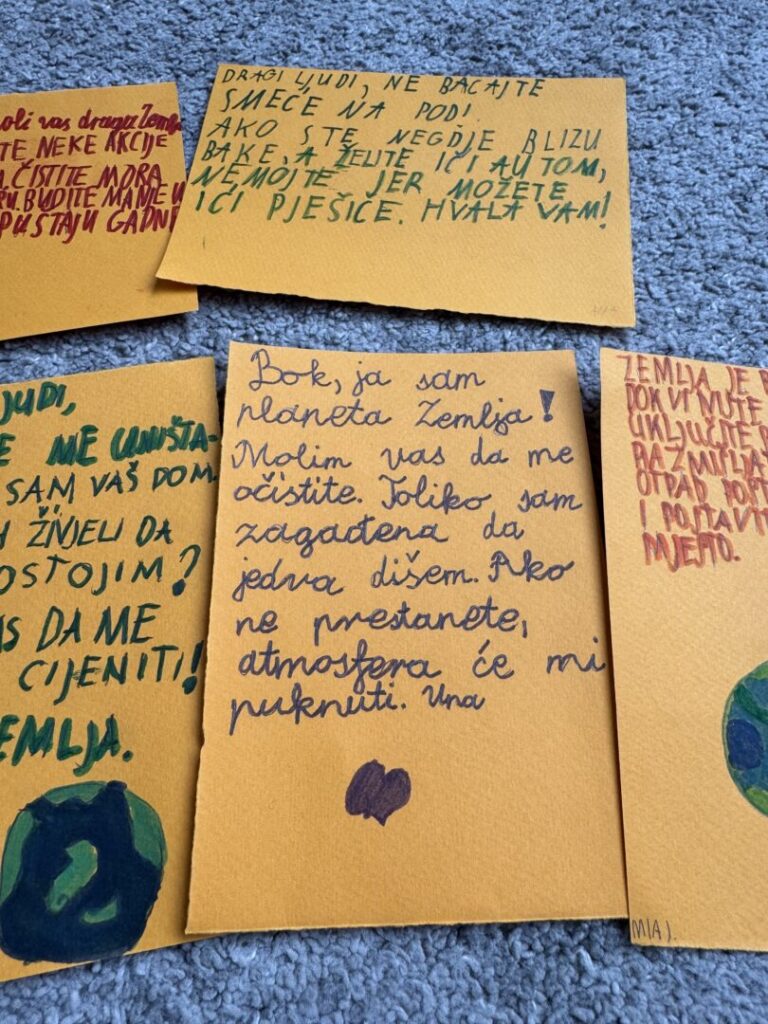 oli vas draga Zem
TE NEKE AKCIJE
ČISTITE MORA
BUDITE MAME U
PUSTAJU GADNE
DRAGI LJUDI, NE BACAJTE
SMEĆE NA POD!
AKO STE NEGDJE BLIZU
BAKE, A ŽELITE IĆI AUTOM,
NEMOJTE JER MOŽETE
IĆI PJEŠICE. HVALA VAM!
JUDI,
E ME UNIŠTA-
SAM VAŠ DOM.
ŽIVJELI DA
OSTOJIM?
AS DA ME
CIJENITI!
EMLJA.
Bok, ja sam
planeta Zemlja!
Molim vas da me
očistite. Toliko sam
zagađena da
jedva dišem. Ako
ne prestanete,
atmosfera će mi
puknuti. Una
ZEMLJA JE
DOK VI NUTE
UKLJUČITE
RAZMIŠLJA
OTPAD
I POSTAVI
MJESTO.